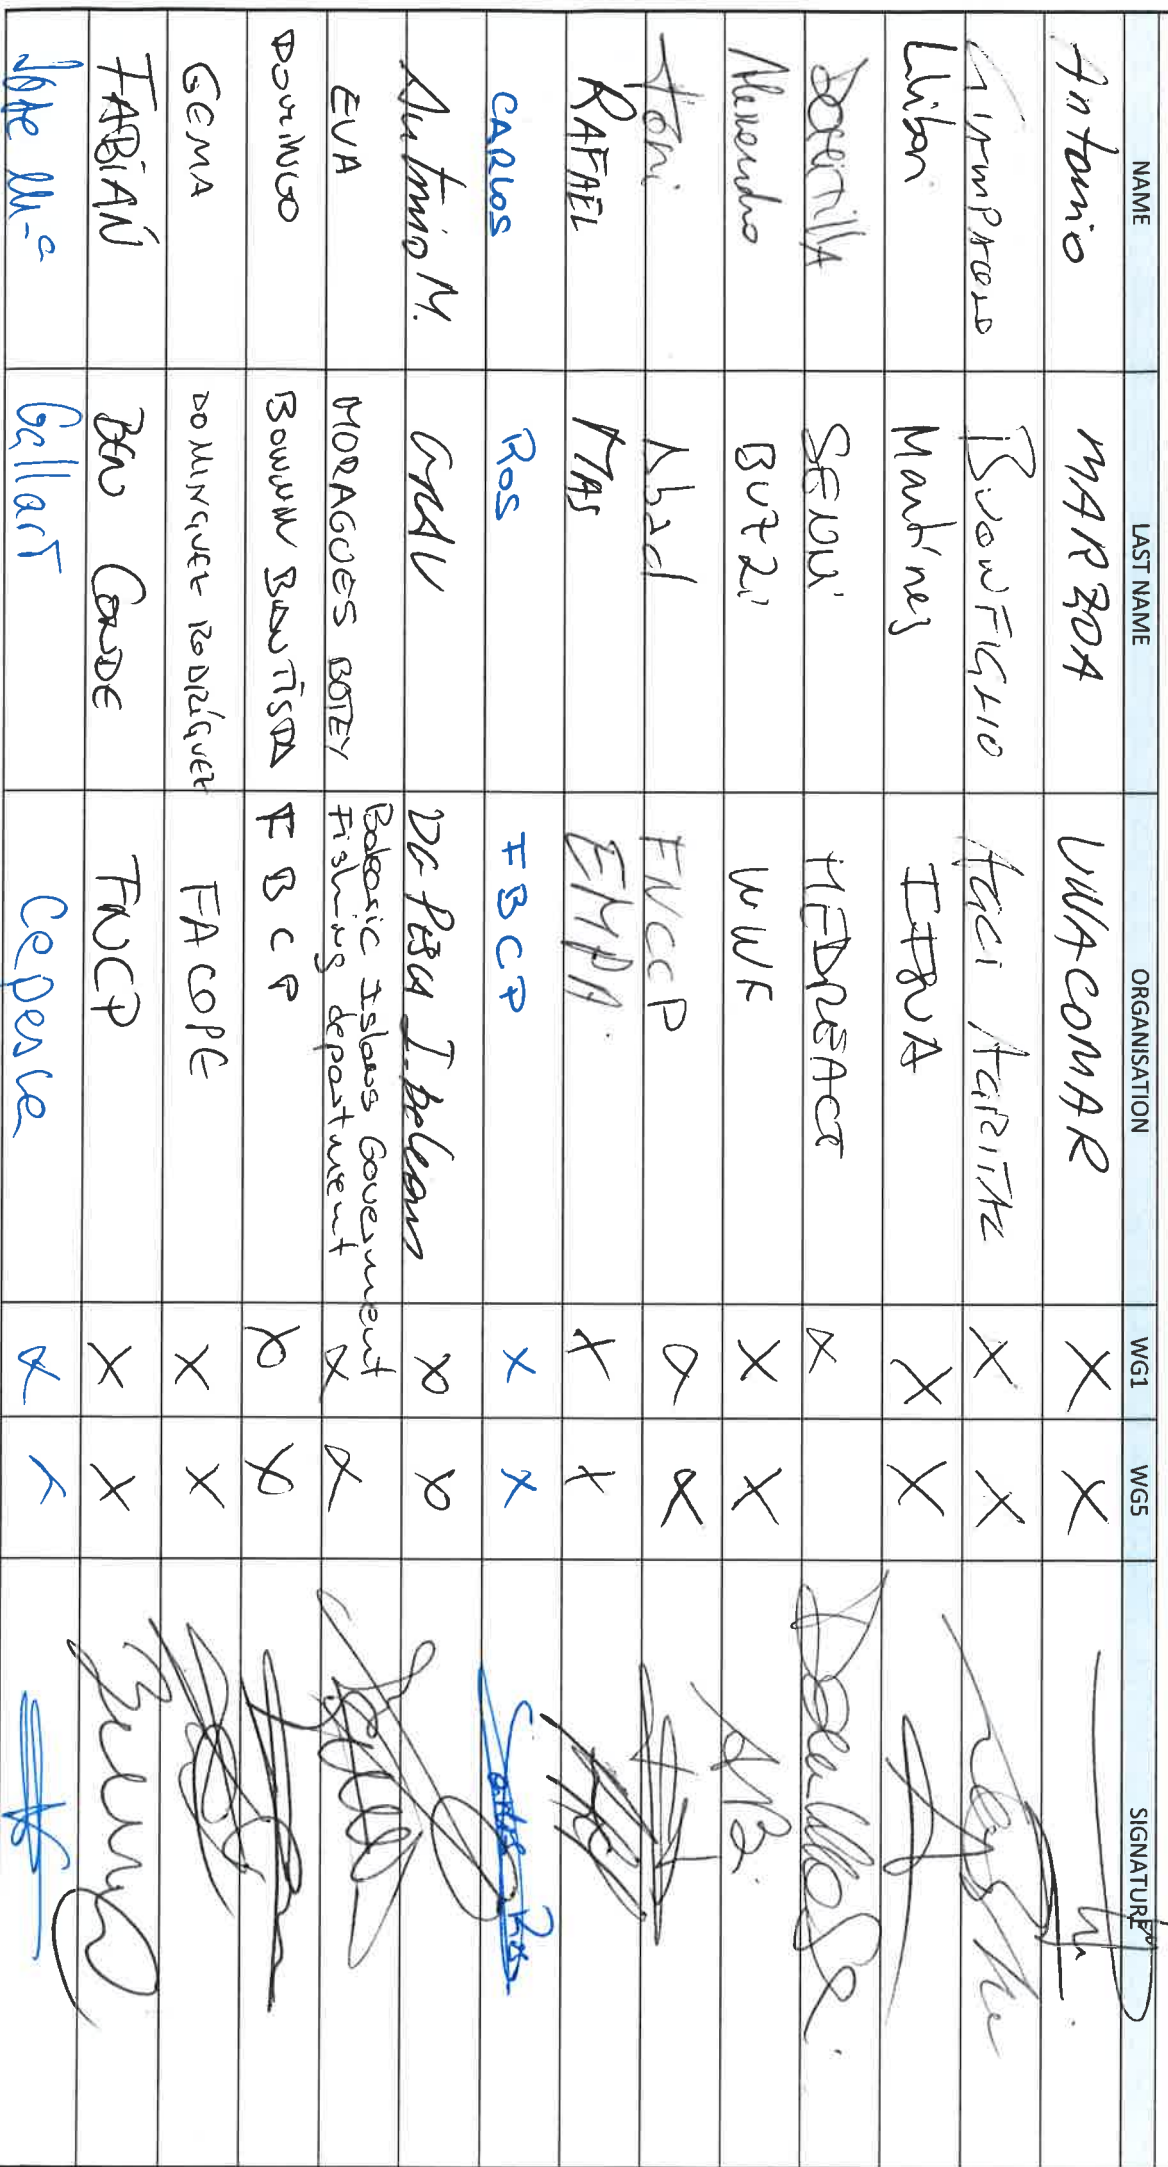 NAME LAST NAME ORGANISATION WG1 WG5 SIGNATURE
Antonio MARZOA UNACOMAR X X
GIAMPAOLO BUONFIGLIO AGCI AGRITAL X X
Llibori Martínez IFSUA X X
DOMITILLA SENNI MEDREACT X
Alessandro BUZZI WWF X X
Toni Abad FNCCP X X
RAFAEL MAS EMPA. X X
CARLOS ROS FBCP X X Carlos Ros
Antonio M. GRAU DG PESCA I. balears X X
EVA MORAGUES BOTEY Balearic Islands Government X X
Fishing department
DOMINGO BONNIN BAUTISTA FBCP X X
GEMA DOMINGUEZ RODRÍGUEZ FACOPE X X
FABIÁN CONDE FNCP X X
José Mª Gallart Cepesca X X